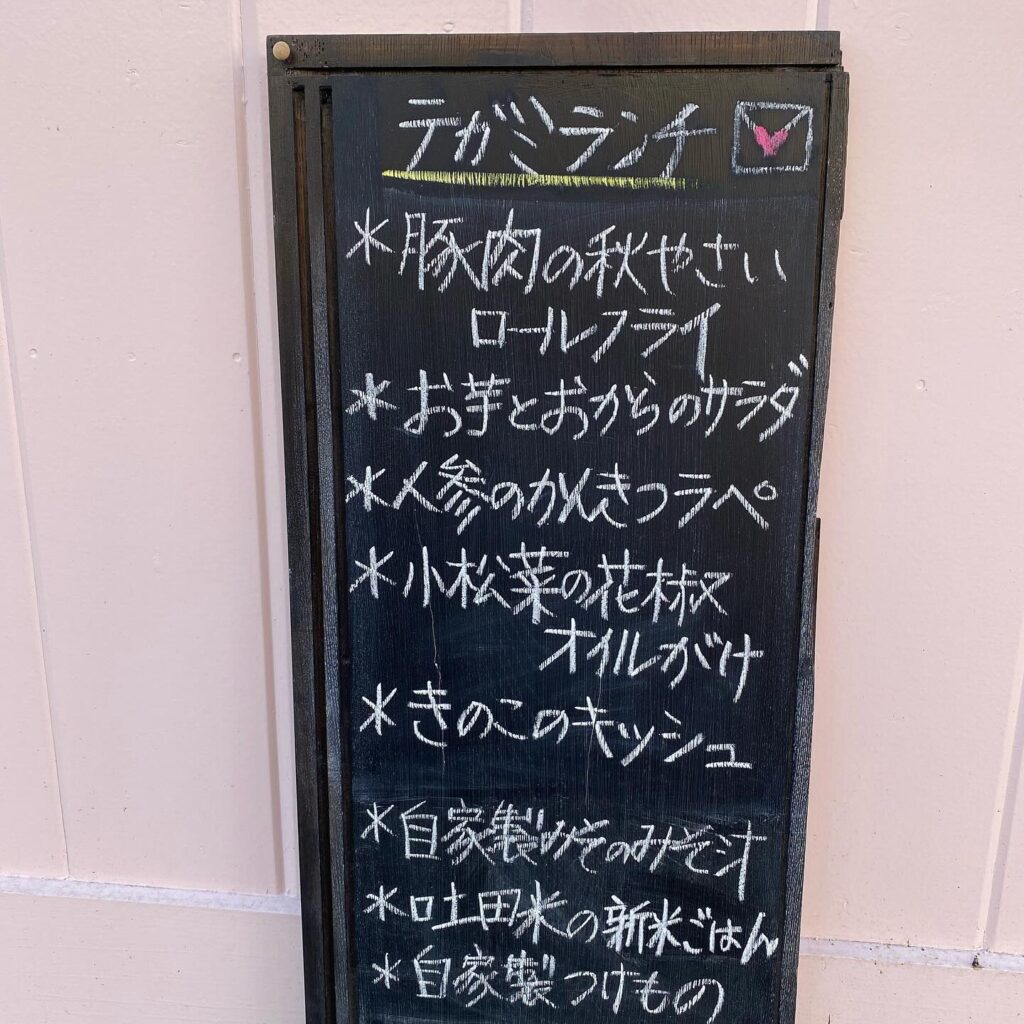 テガミランチ
＊豚肉の秋やさい
ロールフライ
＊お芋とおからのサラダ
＊人参のかんきつラペ
＊小松菜の花椒
オイルがけ
＊きのこのキッシュ
＊自家製みそのみそ汁
＊吐田米の新米ごはん
＊自家製つけもの